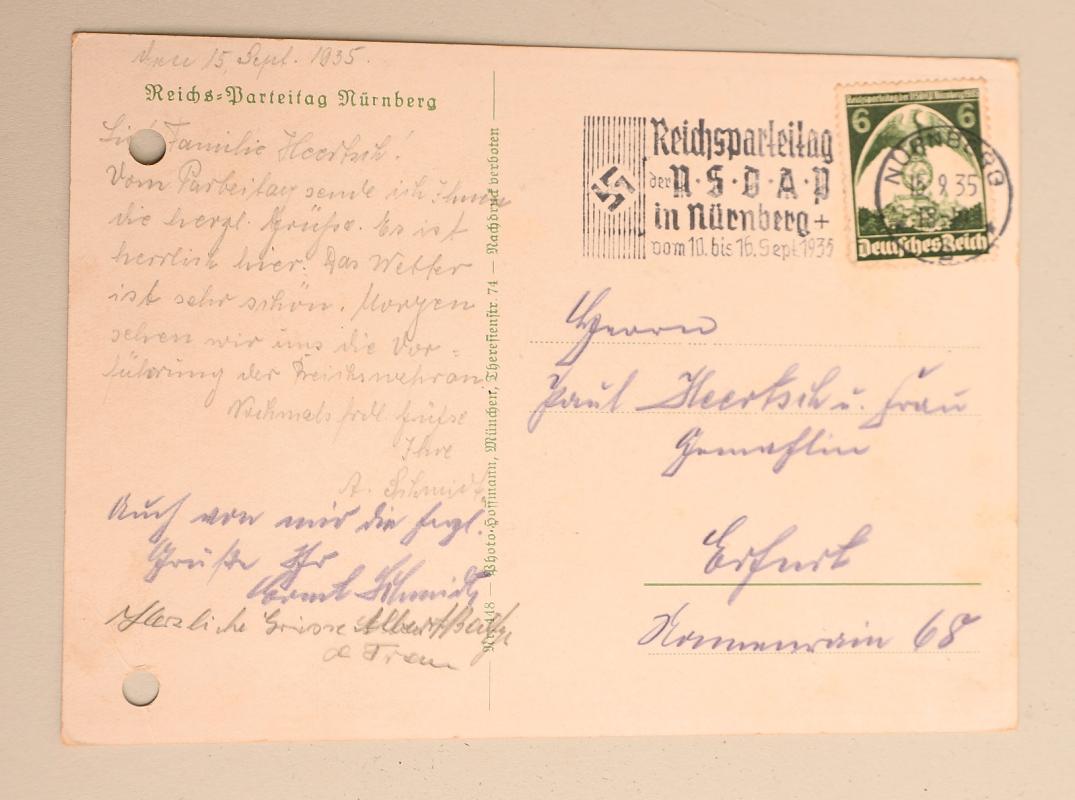 den 15. Sept. 1935.
Reichs-Parteitag Nürnberg
Familie Heertsch!
Vom Parteitag sende ich Ihnen
die herzl. Grüße. Es ist
herrlich hier. Das Wetter
ist sehr schön. Morgen
sehen wir uns die Vor-
führung der Reichswehr an
Nochmals frdl. Grüße
Ihre
A. Schmidt.
Auch von mir die herzl.
Grüße Ihr
Schmidt
Herzliche Grüsse Albert
Frau
Nr. 448 — Photo-Hoffmann, München, Theresienstr. 74 — Nachdruck verboten
Reichsparteitag
der N·S·D·A·P
in Nürnberg +
vom 10. bis 16. Sept 1935
Reichsparteitag der NSDAP Nürnberg 1935
6 6
Deutsches Reich
NÜRNBERG
9 35
2
Herrn
Paul Heertsch u. Frau
Gemahlin
Erfurt
Nonnenrain 68